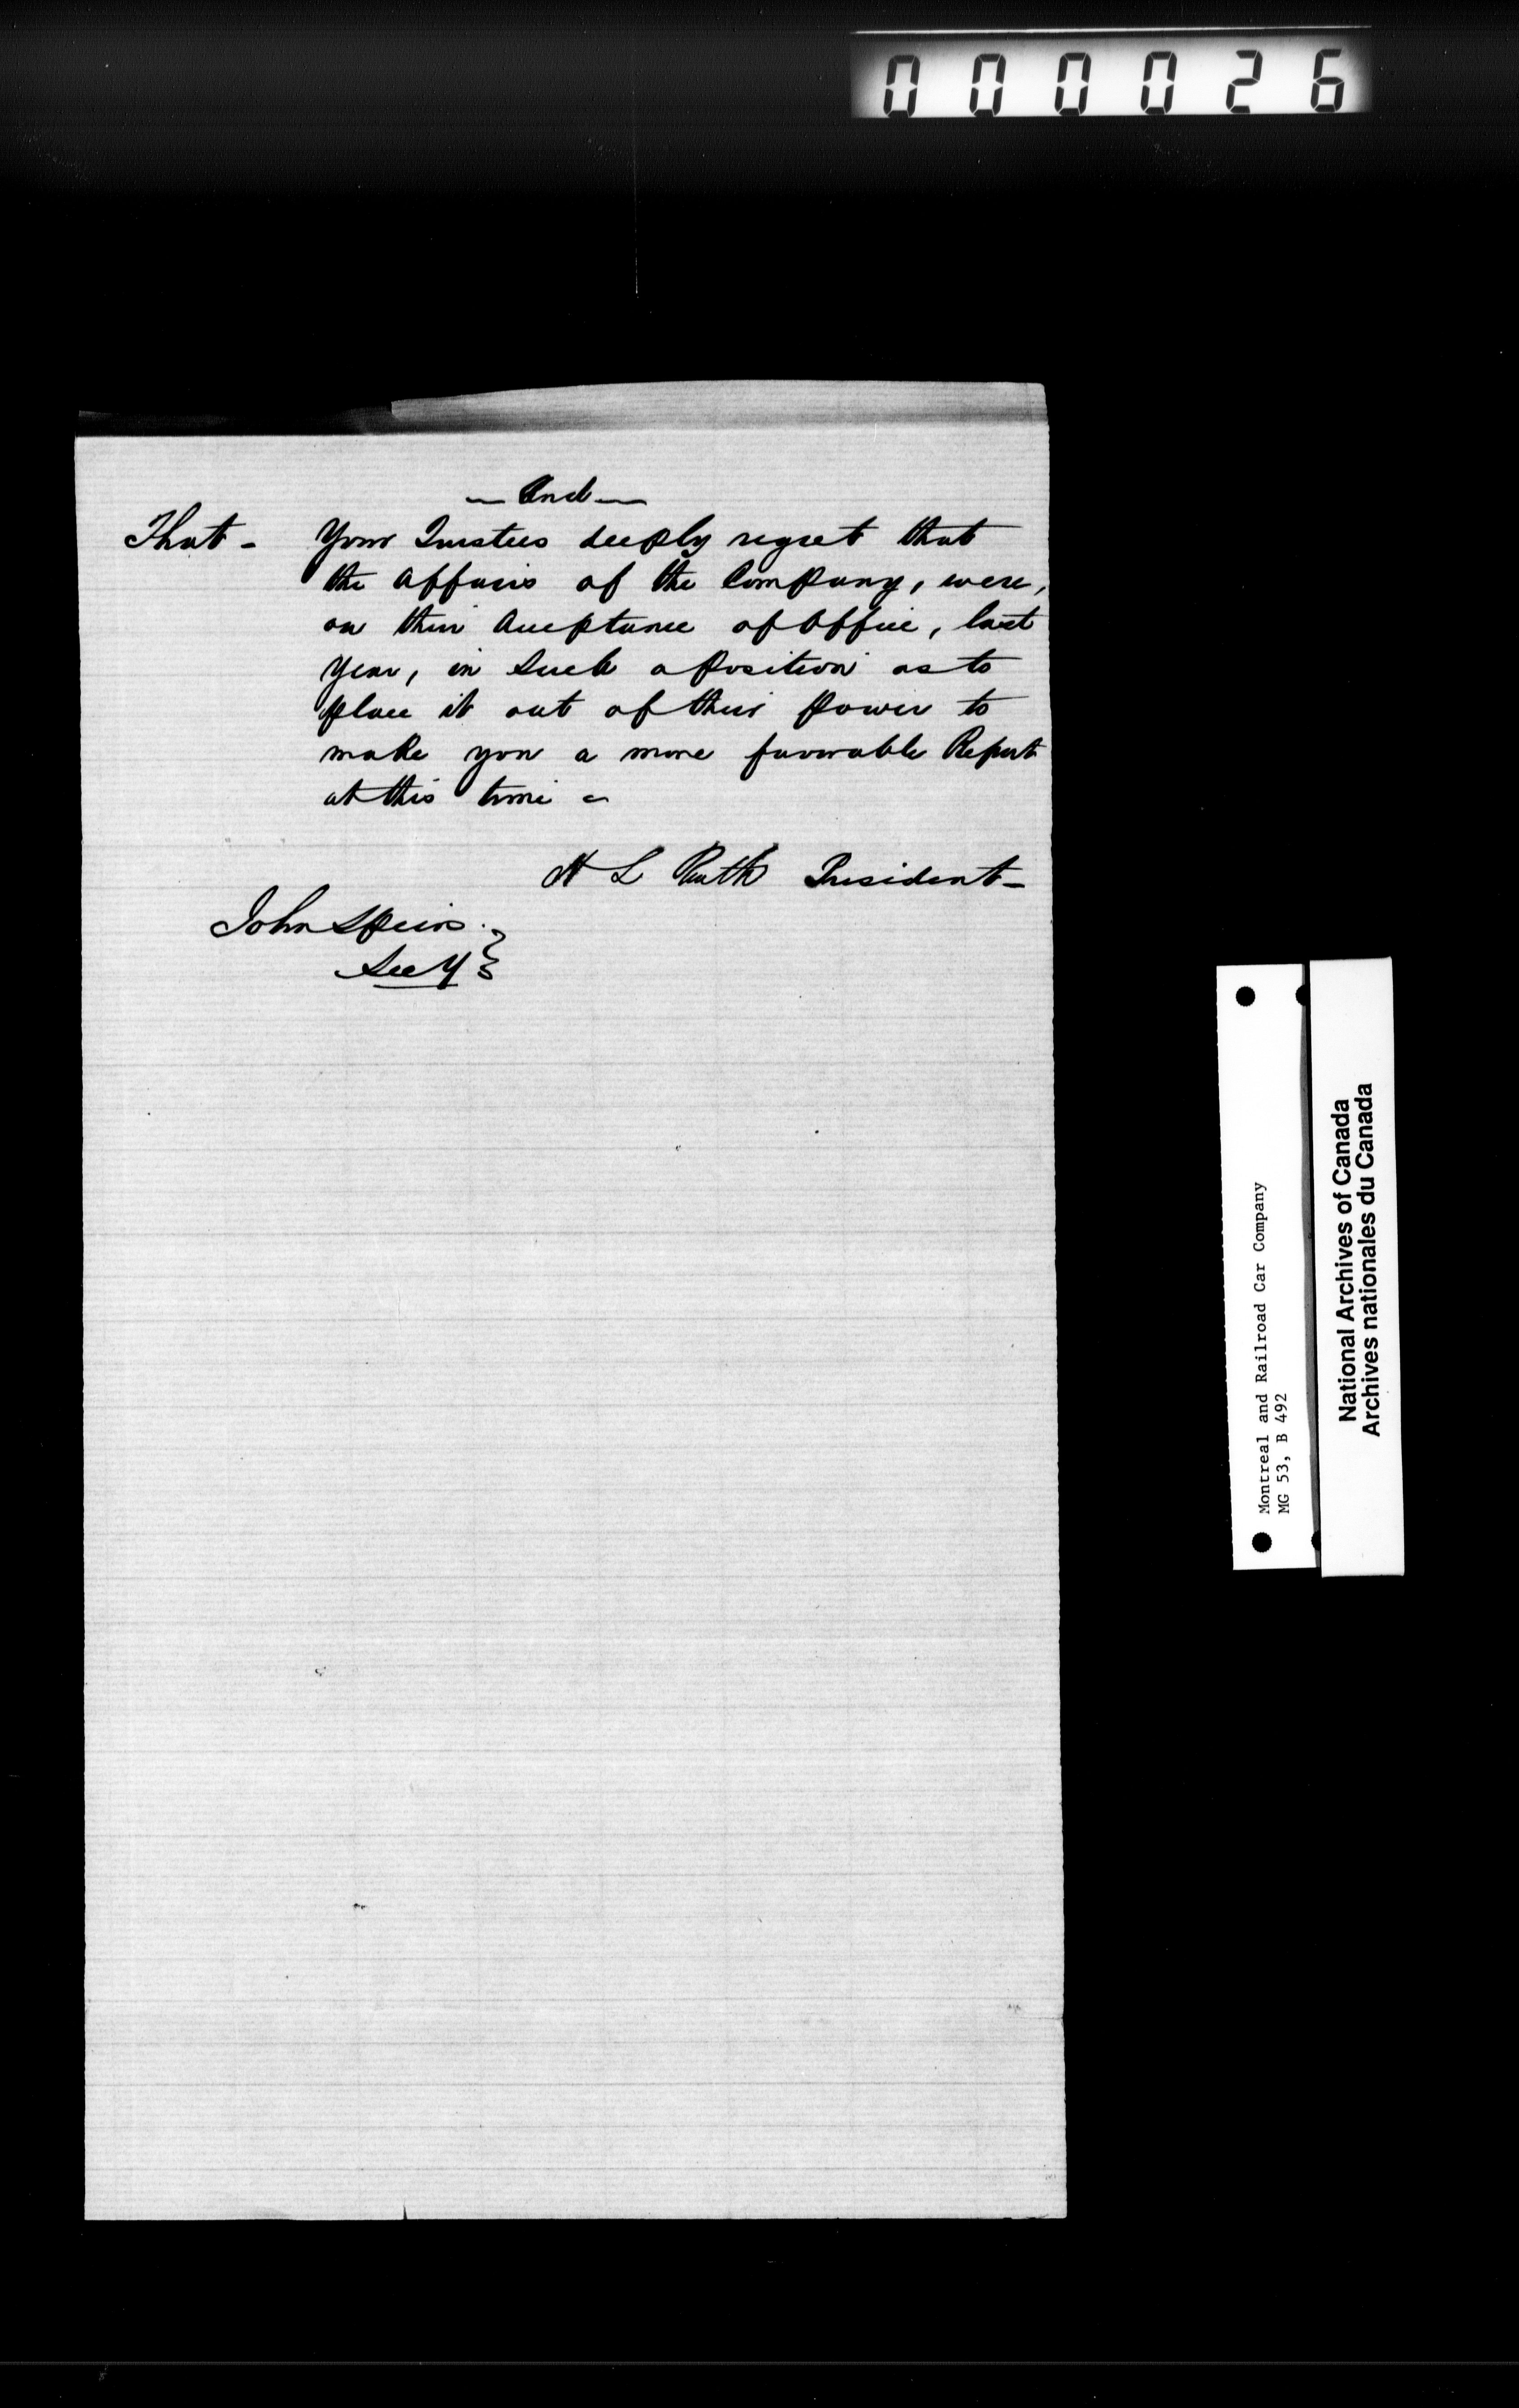 000026
— And —
That - Your Trustees deeply regret that
the Affairs of the Company, were,
on their Acceptance of Office, last
year, in such a position as to
place it out of their power to
make you a more favorable Report
at this time -
H L Routh President -
John Speirs.
Secy }
Montreal and Railroad Car Company
MG 53, B 492
National Archives of Canada
Archives nationales du Canada